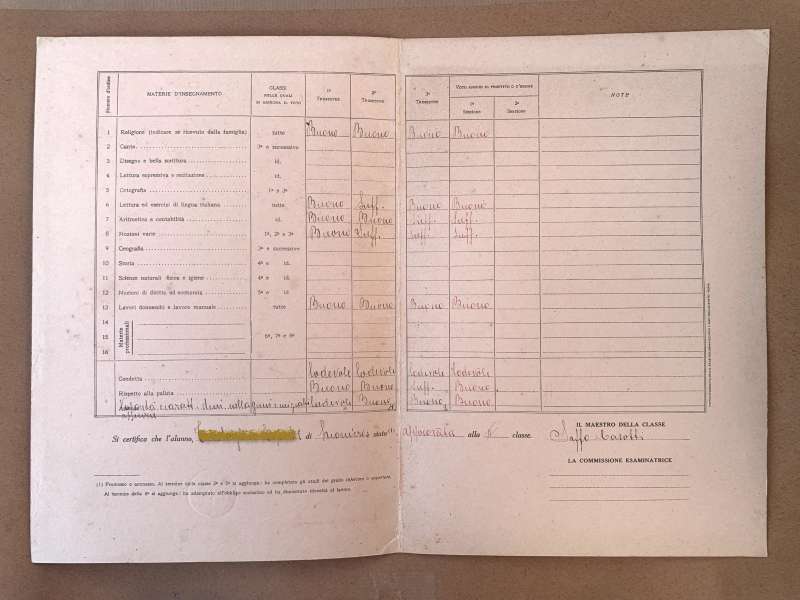 Numero d'ordine MATERIE D'INSEGNAMENTO CLASSI NELLE QUALI SI ASSEGNA IL VOTO 1º Trimestre 2º Trimestre 3º Trimestre VOTI ANNUI DI PROFITTO O D'ESAME 1ª Sessione 2ª Sessione NOTE
1 Religione (indicare se ricevuto dalla famiglia) tutte Buono Buono Buono Buono
2 Canto 3ª e successive
3 Disegno e bella scrittura id.
4 Lettura espressiva e recitazione id.
5 Ortografia 1ª e 3ª
6 Lettura ed esercizi di lingua italiana tutte Buono Suff. Buono Buono
7 Aritmetica e contabilità id. Buono Buono Suff. Suff.
8 Nozioni varie 1ª, 2ª e 3ª Buono Suff. Suff. Suff.
9 Geografia 3ª e successive
10 Storia 4ª e id.
11 Scienze naturali fisica e igiene 4ª e id.
12 Nozioni di diritto ed economia 5ª e id.
13 Lavori donneschi e lavoro manuale tutte Buono Buono Buono Buono
14
15 Materie professionali 6ª, 7ª e 8ª
16
Condotta Lodevole Lodevole Lodevole Lodevole
Rispetto alla pulizia Buono Buono Suff. Buono
Lodevole Buono Buono Buono
Si certifica che l'alunno, di stato (1) approvata alla classe.
IL MAESTRO DELLA CLASSE
Saffo
LA COMMISSIONE ESAMINATRICE
(1) Promosso o ammesso. Al termine delle classe 3ª e 5ª si aggiunga: ha completato gli studi del grado inferiore o superiore.
Al termine della 8ª si aggiunga: ha adempiuto all'obbligo scolastico ed ha dimostrato idoneità al lavoro.